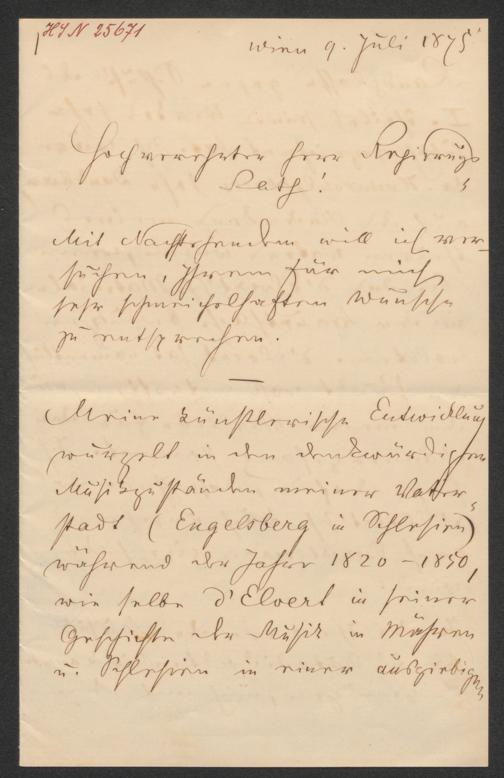 HIN 25671
Wien 9. Juli 1875
Hochverehrter Herr Regierungs
Rath!
Mit Nachstehendem will ich ver-
suchen, Ihrem für mich
sehr schmeichelhaften Wunsche
zu entsprechen.
Meine künstlerische Entwicklung
wurzelt in den denkwürdigen
Musikzuständen meiner Vater-
stadt (Engelsberg in Schlesien)
während der Jahre 1820–1850,
wie selbe d'Elvert in seiner
Geschichte der Musik in Mähren
u. Schlesien in einer ausgiebigen